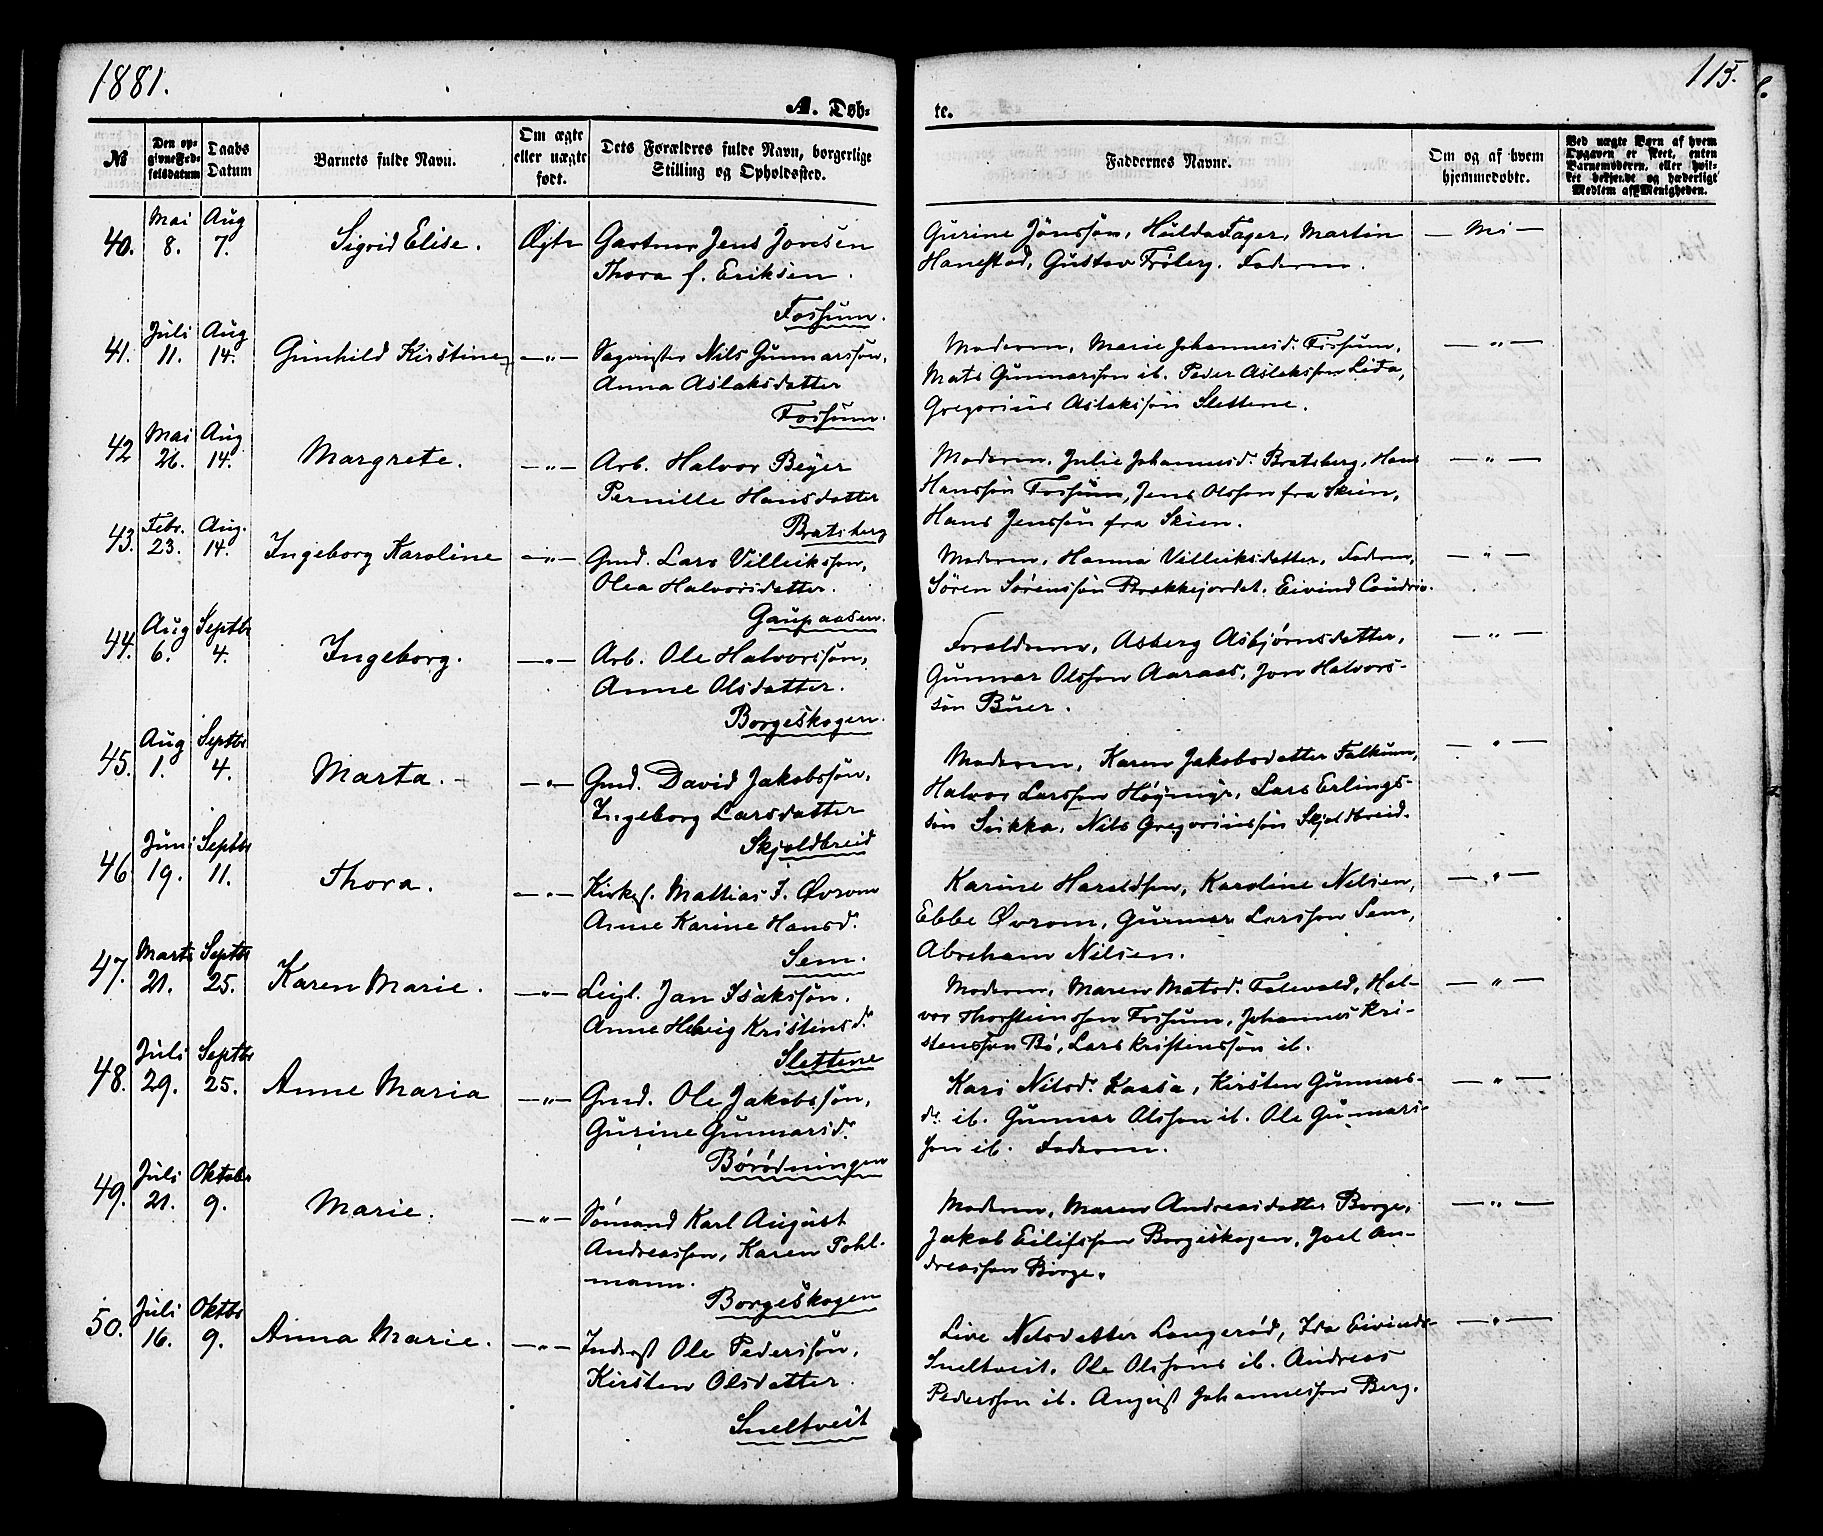 1881.
115.
A. Døb-
te.
№
Den op-
givne Fød-
selsdatum
Daabs
Datum
Barnets fulde Navn.
Om ægte
eller uægte
født.
Dets Forældres fulde Navn, borgerlige
Stilling og Opholdssted.
Faddernes Navne.
Om og af hvem
hjemmedøbt.
Ved uægte Børn af hvem
Opgaven er skeet, enten
Barnemoderen, eller hvil-
ket bekjendt og hæderligt
Medlem af Menigheden.
40. Mai 8. Aug 7. Sigrid Elise. Ægte Gartner Jens Jonsen
Thora f. Eriksen.
Fossum.
Gurine Jönssön, Hulda Fager, Martin
Hanestad, Gustav Fröberg. Faderen.
— Nei —
41. Juli 11. Aug 14. Gunhild Kirstine —„— Nils Gunnarssön,
Anna Aslaksdatter
Fossum.
Moderen, Marie Johannesd. Fossum,
Mats Gunnarssön ib. Peder Aslakssön Lida,
Gregorius Aslakssön Slettene.
— „ —
42 Mai 26. Aug 14. Margrete. —„— Arb. Halvor Beyer
Pernille Hansdatter
Bratsberg
Moderen, Julie Johannesd. Bratsberg, Hans
Hanssön Fossum, Jens Olsson fra Skien,
Hans Jenssön fra Skien.
— „ —
43. Febr. 23. Aug. 14. Ingeborg Karoline —„— Gmd. Lars Villeiksson,
Olea Halvorsdatter.
Gaupaasen.
Moderen, Hanna Villeiksdatter, Faderen,
Sören Sörenssön Brækkejordet, Eivind
— „ —
44. Aug 6. Septbr 4. Ingeborg. —„— Arb. Ole Halvorssön,
Anne Olsdatter.
Borgeskogen.
Forældrene, Asberg Asbjørnsdatter,
Gunnar Olsson Aaraas, Jon Halvors-
sön Buer.
— „ —
45. Aug 1. Septbr 4. Marta. —„— Gmd. David Jakobssön,
Ingeborg Larsdatter
Skjoldbreid
Moderen, Karen Jakobsdatter Falkum,
Halvor Larsson Høymyr, Lars Erlings-
sön Nils Gregoriussön Skjoldbreid.
— „ —
46. Juni 19. Septbr 11. Thora. —„— Kirkes. Mathias J. Øvrom
Anne Karine Hansd.
Sem.
Karine Haraldsen, Karoline Nilsen,
Ebbe Øvrom, Gunnar Larsson Sem,
Abraham Nilsen.
— „ —
47. Marts 21. Septbr 25. Karen Marie. —„— Leigl. Jan Isakssön.
Anne Helvig Kristensd.
Slettene
Moderen, Maren Matsd. Hal-
vor Thorsteinsson Fossum, Johannes Kri-
stensson Bö, Lars Kristenssön ib.
— „ —
48. Juli 29. Septbr 25. Anne Maria —„— Gmd. Ole Jakobssön,
Gurine Gunnarsd.
Börödningen
Kari Nilsd. Kaasa, Kirsten Gunnars-
d. ib. Gunnar Olsson ib. Ole Gunnars-
son ib. Faderen.
— „ —
49. Juli 21. Oktober 9. Marie. —„— Sömand Karl August
Andreasson, Karen Pohl-
mann.
Borgeskogen
Moderen, Maren Andreasdatter Borge,
Jakob Eilifsson Borgeskogen, Joel An-
dreasson Borge.
— „ —
50. Juli 16. Oktbr 9. Anna Marie. —„— Inderst Ole Pederssön,
Kirsten Olsdatter.
Sneltveit
Live Nilsdatter Langeröd, Ida Eivinds-
Sneltveit, Ole Olssöns ib. Andreas
Pedersson ib. August Johannesson Berg.
— „ —